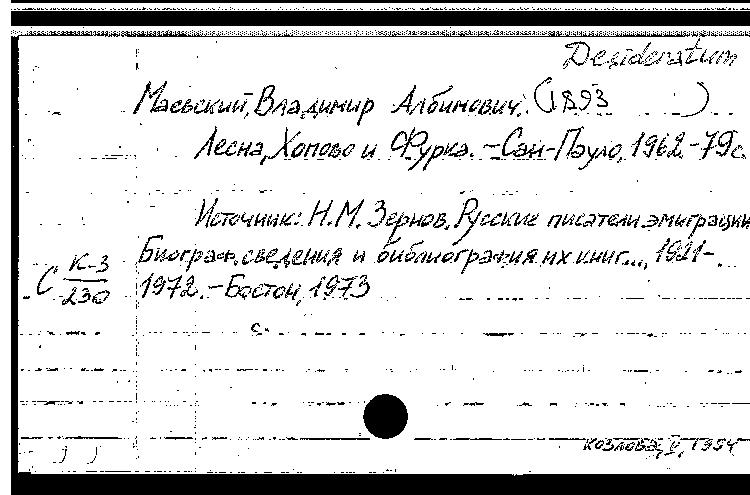 Desideratum
Маевский, Владимир Албинович. (1893 )
Лесна, Хопово и Фурка. - Сан-Пауло, 1962. - 79с.
Источник: Н.М. Зернов. Русские писатели эмиграции
Биограф. сведения и библиография их книг..., 1921-
1972. - Бостон, 1973
С К-3
230
с.
Козлова, V, 1994